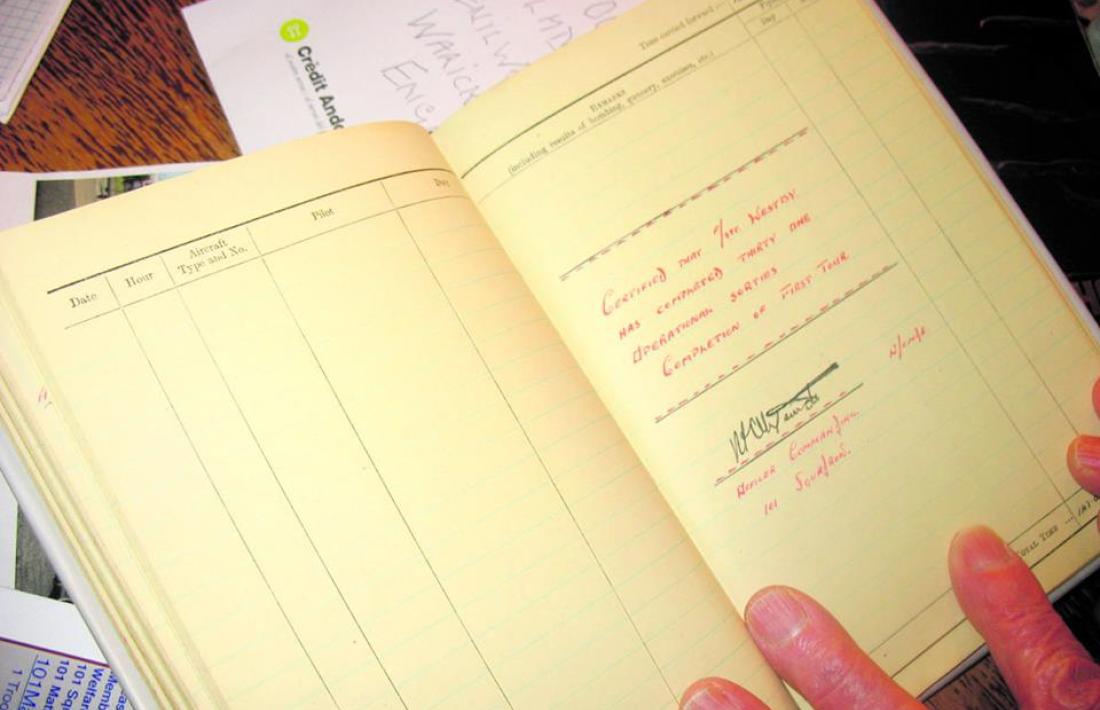 Crèdit Ando
WARICK
ENG
Date
Hour
Aircraft
Type and No.
Pilot
Day
Time carried forward :—
Day
REMARKS
(including results of bombing, gunnery, exercises, etc.)
CERTIFIED THAT F/SGT. WESTBY.
HAS COMPLETED THIRTY ONE
OPERATIONAL SORTIES
COMPLETION OF FIRST TOUR
OFFICER COMMANDING.
101 SQUADRON.
TOTAL TIME ...
101 Squ
101 Mat
1 Troo